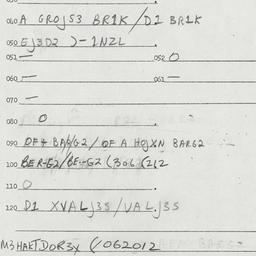 040 A GROJS3 BR1K / D1 BR1K
050 EJ3D2 ) - 1NZL
051 — 052 O
060 — 061 —
070 —
080 O
090 OF4 BARG2 / OF A HOJXN BARG2
100
110 O
120 D1 XVALJ3S / VALJ3S
M3HAKTDOR3X (/062012